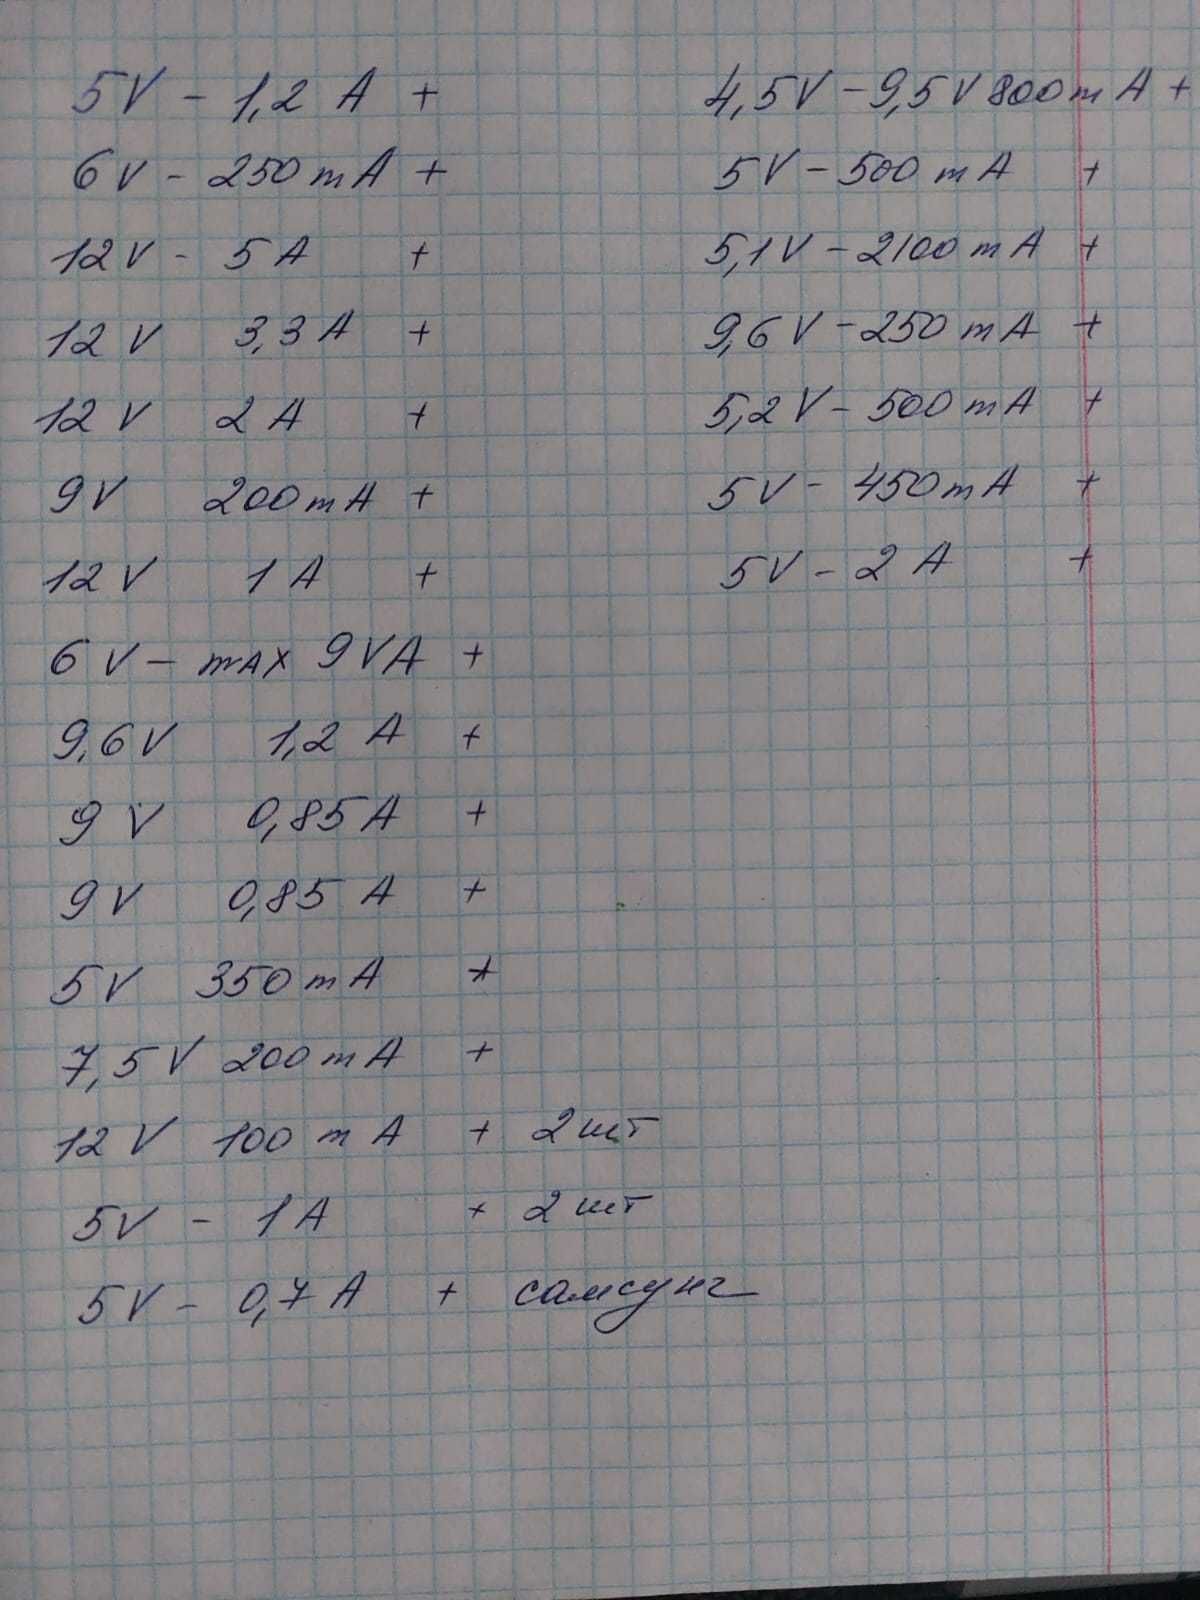 5V - 1,2 A +
6V - 250 mA +
12V - 5 A +
12 V 3,3 A +
12 V 2 A +
9V 200 mA +
12V 1 A +
6 V - max 9VA +
9,6V 1,2 A +
9 V 0,85 A +
9V 0,85 A +
5V 350 mA +
7,5V 200 mA +
12 V 100 mA + 2 шт
5V - 1 A + 2 шт
5V - 0,7 A + самсунг
4,5V - 9,5V 800 mA +
5V - 500 mA +
5,1V - 2100 mA +
9,6V - 250 mA +
5,2V - 500 mA +
5V - 450 mA +
5V - 2 A +